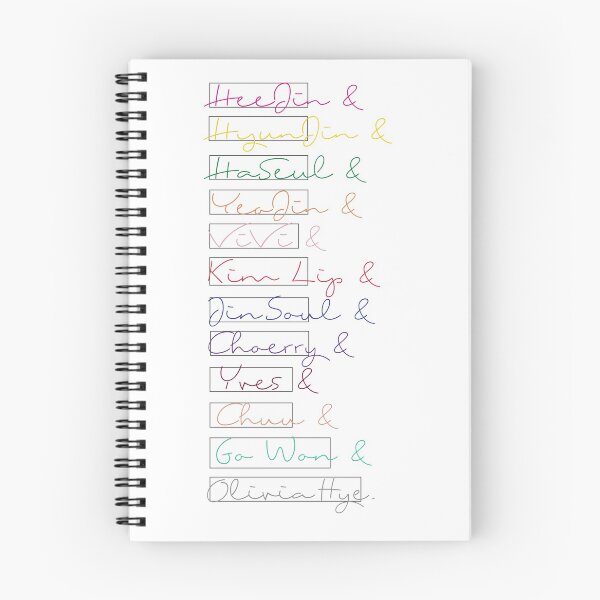 HeeJin &
HyunJin &
HaSeul &
YeoJin &
ViVi &
Kim Lip &
JinSoul &
Choerry &
Yves &
Chuu &
Go Won &
Olivia Hye.